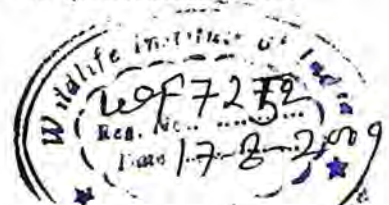 Wildlife Institute of India
Reg. No..
Date 17-8-2009